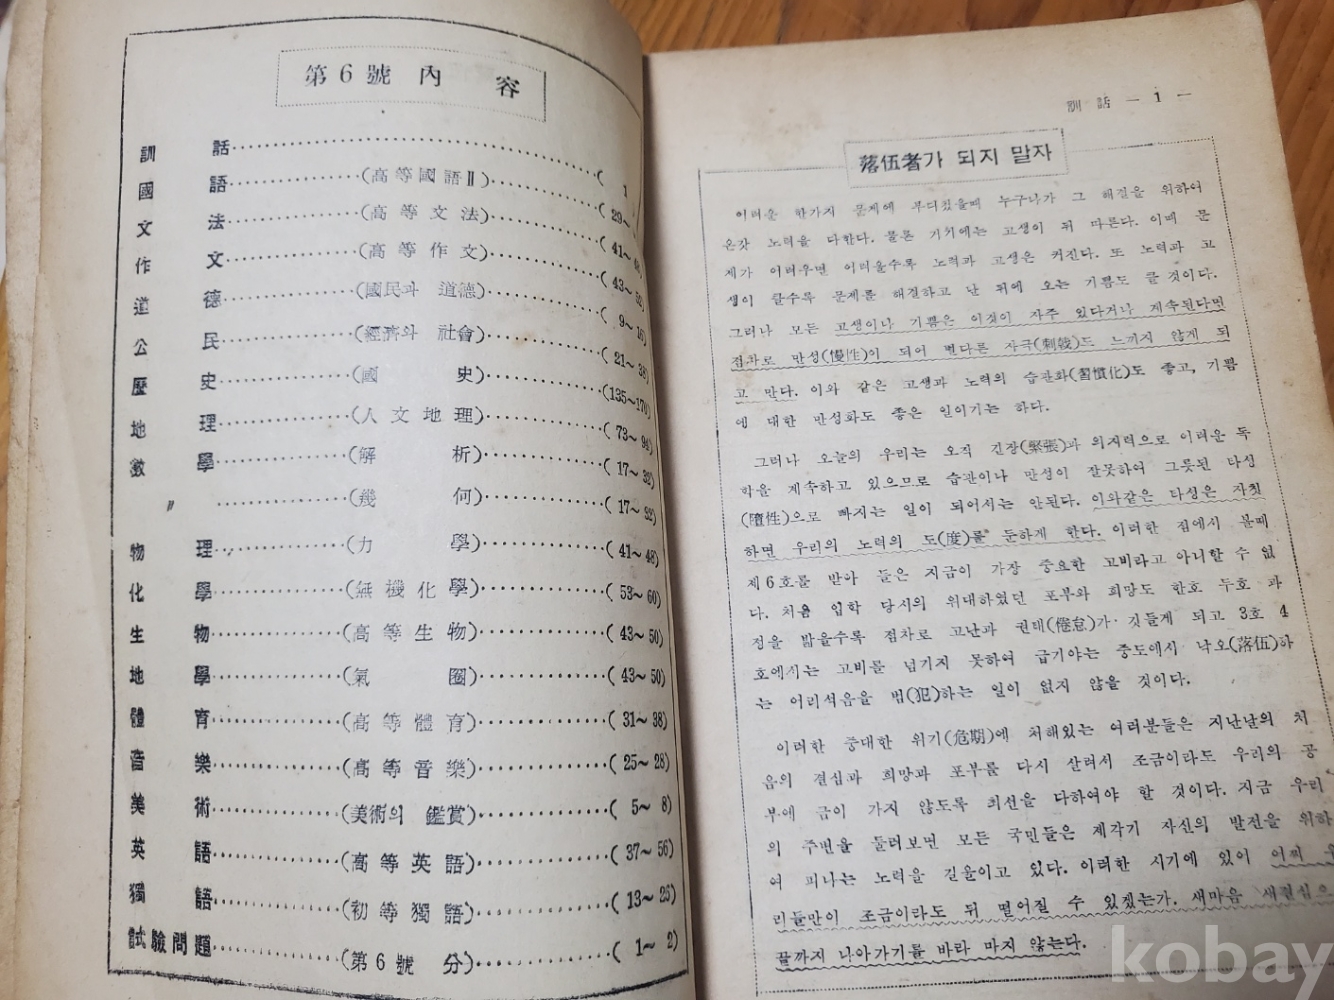 第6號 內 容
訓 話 ( 1
國 語 (高等國語Ⅱ) ( 29~
文 法 (高等文法) ( 41~
作 文 (高等作文) ( 43~52)
道 德 (國民과 道德) ( 9~16)
公 民 (經濟와 社會) ( 21~38)
歷 史 (國 史) (135~170)
地 理 (人文地理) ( 73~94)
數 學 (解 析) ( 17~32)
〃 (幾 何) ( 17~32)
物 理 (力 學) ( 41~48)
化 學 (無機化學) ( 53~60)
生 物 (高等生物) ( 43~50)
地 學 (氣 圈) ( 43~50)
體 育 (高等體育) ( 31~38)
音 樂 (高等音樂) ( 25~28)
美 術 (美術의 鑑賞) ( 5~ 8)
英 語 (高等英語) ( 37~56)
獨 語 (初等獨語) ( 13~25)
試驗問題 (第6號 分) ( 1~ 2)
訓 話 — 1 —
落伍者가 되지 말자
어려운 한가지 문제에 부디쳤을때 누구나가 그 해결을 위하여
온갖 노력을 다한다. 물론 거치에는 고생이 뒤 따른다. 이때 문
제가 어려우면 어려울수록 노력과 고생은 커진다. 또 노력과 고
생이 클수록 문제를 해결하고 난 뒤에 오는 기쁨도 클 것이다.
그러나 모든 고생이나 기쁨은 이것이 자주 있다거나 계속된다면
점차로 만성(慢性)이 되어 별다른 자극(刺戟)도 느끼지 않게 되
고 만다. 이와 같은 고생과 노력의 습관화(習慣化)도 좋고, 기쁨
에 대한 만성화도 좋은 일이기는 하다.
그러나 오늘의 우리는 오직 긴장(緊張)과 의지력으로 이러운 독
학을 계속하고 있으므로 습관이나 만성이 잘못하여 그릇된 타성
(墮性)으로 빠지는 일이 되어서는 안된다. 이와같은 타성은 자칫
하면 우리의 노력의 도(度)를 둔하게 한다. 이러한 점에서 볼때
제6호를 받아 들은 지금이 가장 중요한 고비라고 아니할 수 없
다. 처음 입학 당시의 위대하였던 포부와 희망도 한호 두호 과
정을 밟을수록 점차로 고난과 권태(倦怠)가 깃들게 되고 3호 4
호에서는 고비를 넘기지 못하여 급기야는 중도에서 낙오(落伍)하
는 어리석음을 범(犯)하는 일이 없지 않을 것이다.
이러한 중대한 위기(危期)에 처해있는 여러분들은 지난날의 처
음의 결심과 희망과 포부를 다시 살려서 조금이라도 우리의 공
부에 금이 가지 않도록 최선을 다하여야 할 것이다. 지금 우리
의 주변을 둘러보면 모든 국민들은 제각기 자신의 발전을 위하
여 피나는 노력을 기울이고 있다. 이러한 시기에 있어 어찌
리들만이 조금이라도 뒤 떨어질 수 있겠는가. 새마음 새결심으
끝까지 나아가기를 바라 마지 않는다.
kobay